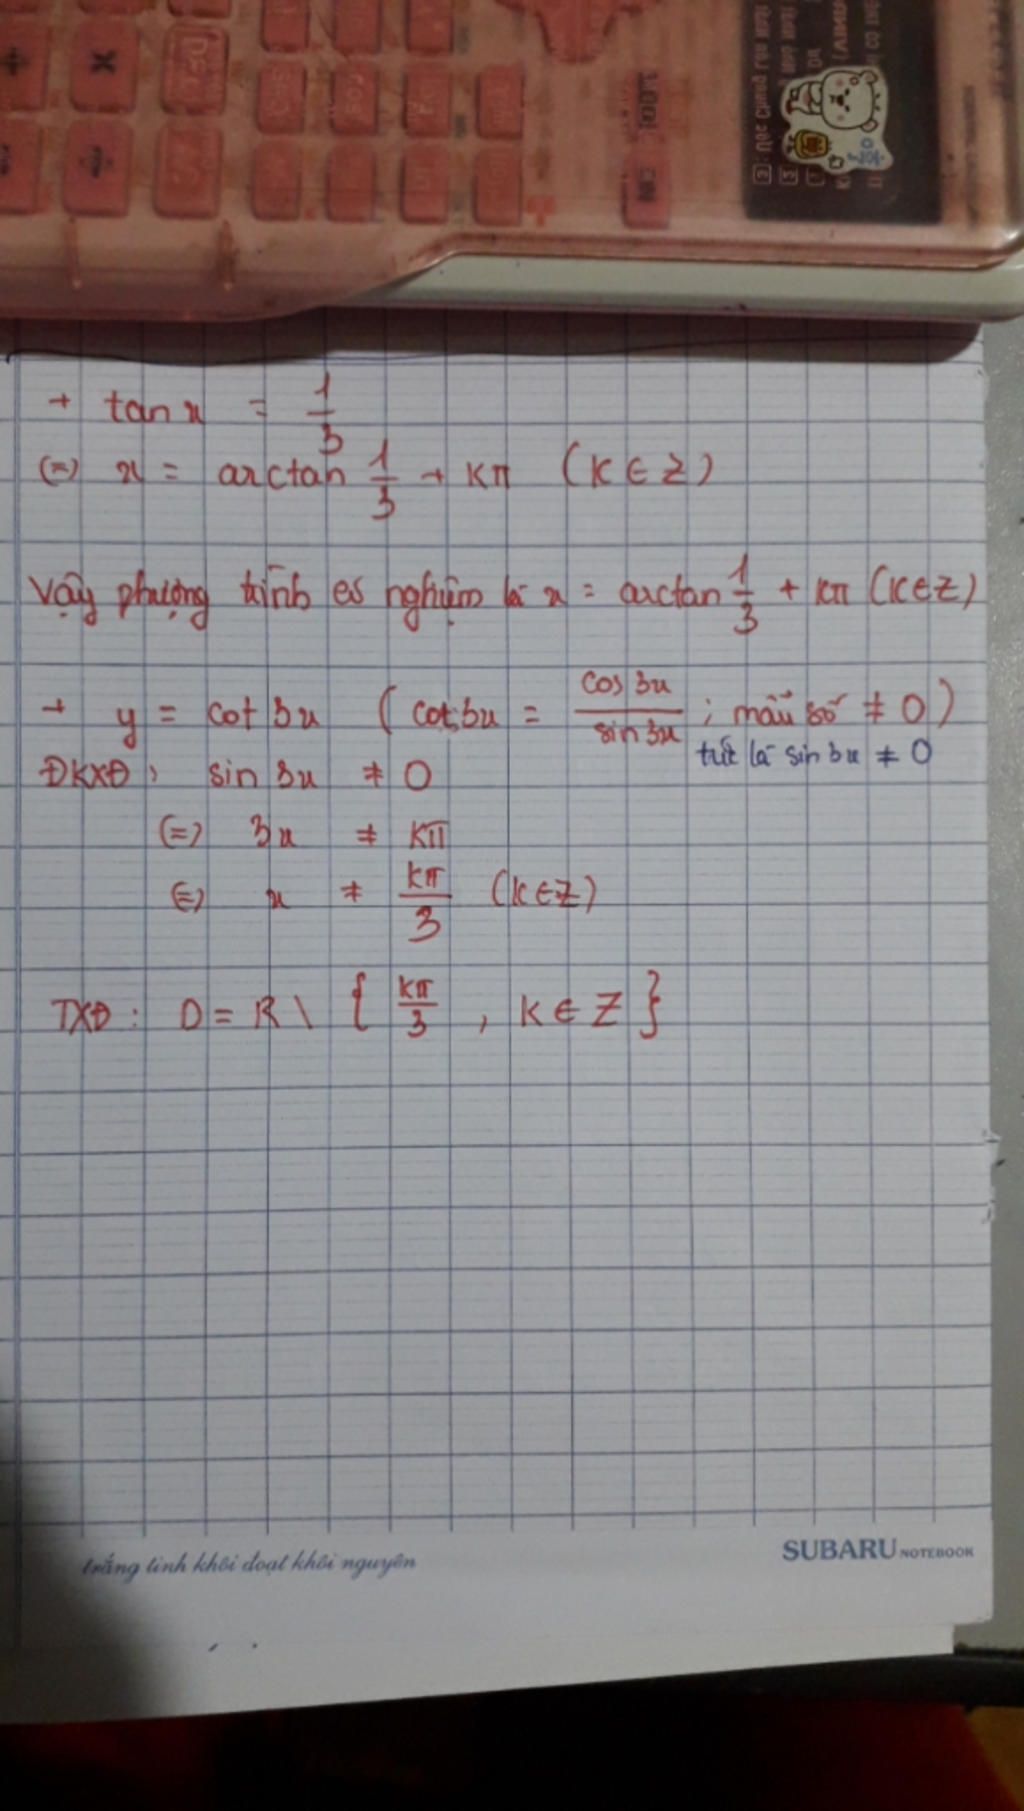 + tan x = 1/3
(=) x = arctan 1/3 + kπ (k ∈ Z)
Vậy phương trình có nghiệm là x = arctan 1/3 + kπ (k ∈ Z)
+ y = cot 3x (cot 3x = cos 3x / sin 3x ; mẫu số ≠ 0)
tức là sin 3x ≠ 0
ĐKXĐ : sin 3x ≠ 0
(=) 3x ≠ kπ
(=) x ≠ kπ/3 (k ∈ Z)
TXĐ : D = R \ { kπ/3 , k ∈ Z }
trắng tinh khôi đoạt khôi nguyên
SUBARU NOTEBOOK